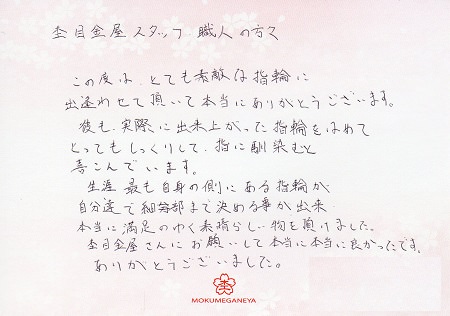 杢目金屋スタッフ 職人の方々
この度は、とても素敵な指輪に
出逢わせて頂いて本当にありがとうございます。
彼も、実際に出来上がった指輪をはめて
とってもしっくりして、指に馴染むと
喜こんでいます。
生涯 最も自身の側にある指輪が
自分達で細部まで決める事が出来
本当に満足のゆく素晴らしい物を頂けました。
杢目金屋さんにお願いして本当に本当に良かったです。
ありがとうございました。
MOKUMEGANEYA